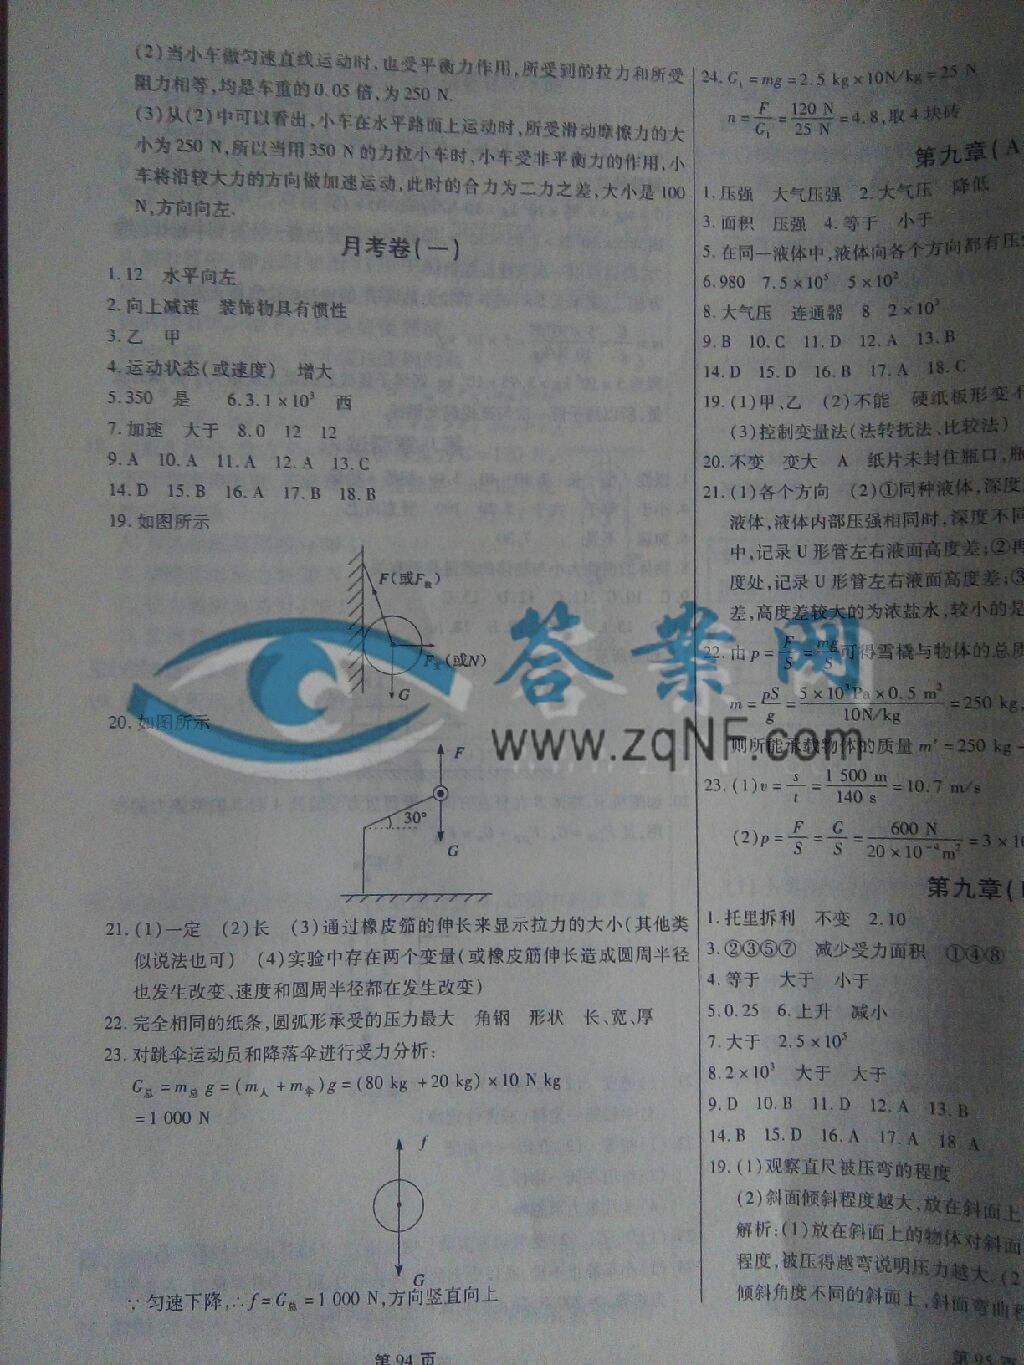 (2)当小车做匀速直线运动时,也受平衡力作用,所受到的拉力和所受
阻力相等,均是车重的0.05倍,为250 N.
(3)从(2)中可以看出,小车在水平路面上运动时,所受滑动摩擦力的大
小为250 N,所以当用350 N的力拉小车时,小车受非平衡力的作用,小
车将沿较大力的方向做加速运动,此时的合力为二力之差,大小是100
N,方向向左.
月考卷(一)
1.12 水平向左
2.向上减速 装饰物具有惯性
3.乙 甲
4.运动状态(或速度) 增大
5.350 是 6.3.1×10³ 西
7.加速 大于 8.0 12 12
9.A 10.A 11.A 12.A 13.C
14.D 15.B 16.A 17.B 18.B
19.如图所示
F(或F
(或N)
G
20.如图所示
F
30°
G
21.(1)一定 (2)长 (3)通过橡皮筋的伸长来显示拉力的大小(其他类
似说法也可) (4)实验中存在两个变量(或橡皮筋伸长造成圆周半径
也发生改变、速度和圆周半径都在发生改变)
22.完全相同的纸条,圆弧形承受的压力最大 角钢 形状 长、宽、厚
23.对跳伞运动员和降落伞进行受力分析:
G总=m总g=(m人+m伞)g=(80 kg+20 kg)×10 N kg
=1 000 N
f
G
∵匀速下降,∴f=G总=1 000 N,方向竖直向上
第94页
24.G₁=mg=2.5 kg×10N/kg=25 N
n=F/G₁=120 N/25 N=4.8,取4块砖
第九章(A
1.压强 大气压强 2.大气压 降低
3.面积 压强 4.等于 小于
5.在同一液体中,液体向各个方向都有压
6.980 7.5×10⁵ 5×10²
8.大气压 连通器 8 2×10³
9.B 10.C 11.D 12.A 13.B
14.D 15.D 16.B 17.A 18.C
19.(1)甲、乙 (2)不能 硬纸板形变不
(3)控制变量法(法转抚法、比较法)
20.不变 变大 A 纸片未封住瓶口,
21.(1)各个方向 (2)①同种液体,深度
液体,液体内部压强相同时,深度不同
中,记录U形管左右液面高度差;②再
度处,记录U形管左右液面高度差;③
差,高度差较大的为浓盐水,较小的是
22.由p=F/S=mg/S可得雪橇与物体的总质
m=pS/g=5×10³Pa×0.5 m²/10N/kg=250 kg,
则所能承载物体的质量m′=250 kg-
23.(1)v=s/t=1 500 m/140 s=10.7 m/s
(2)p=F/S=G/S=600 N/20×10⁻⁴m²=3×10
第九章(
1.托里拆利 不变 2.10
3.②③⑤⑦ 减少受力面积 ①④⑧
4.等于 大于 小于
5.0.25 6.上升 减小
7.大于 2.5×10⁵
8.2×10³ 大于 大于
9.D 10.B 11.D 12.A 13.B
14.B 15.D 16.A 17.A 18.A
19.(1)观察直尺被压弯的程度
(2)斜面倾斜程度越大,放在斜面上
解析:(1)放在斜面上的物体对斜面
程度,被压得越弯说明压力越大.(2
倾斜角度不同的斜面上,斜面弯曲程
第95页
答案网
www.zqNF.com